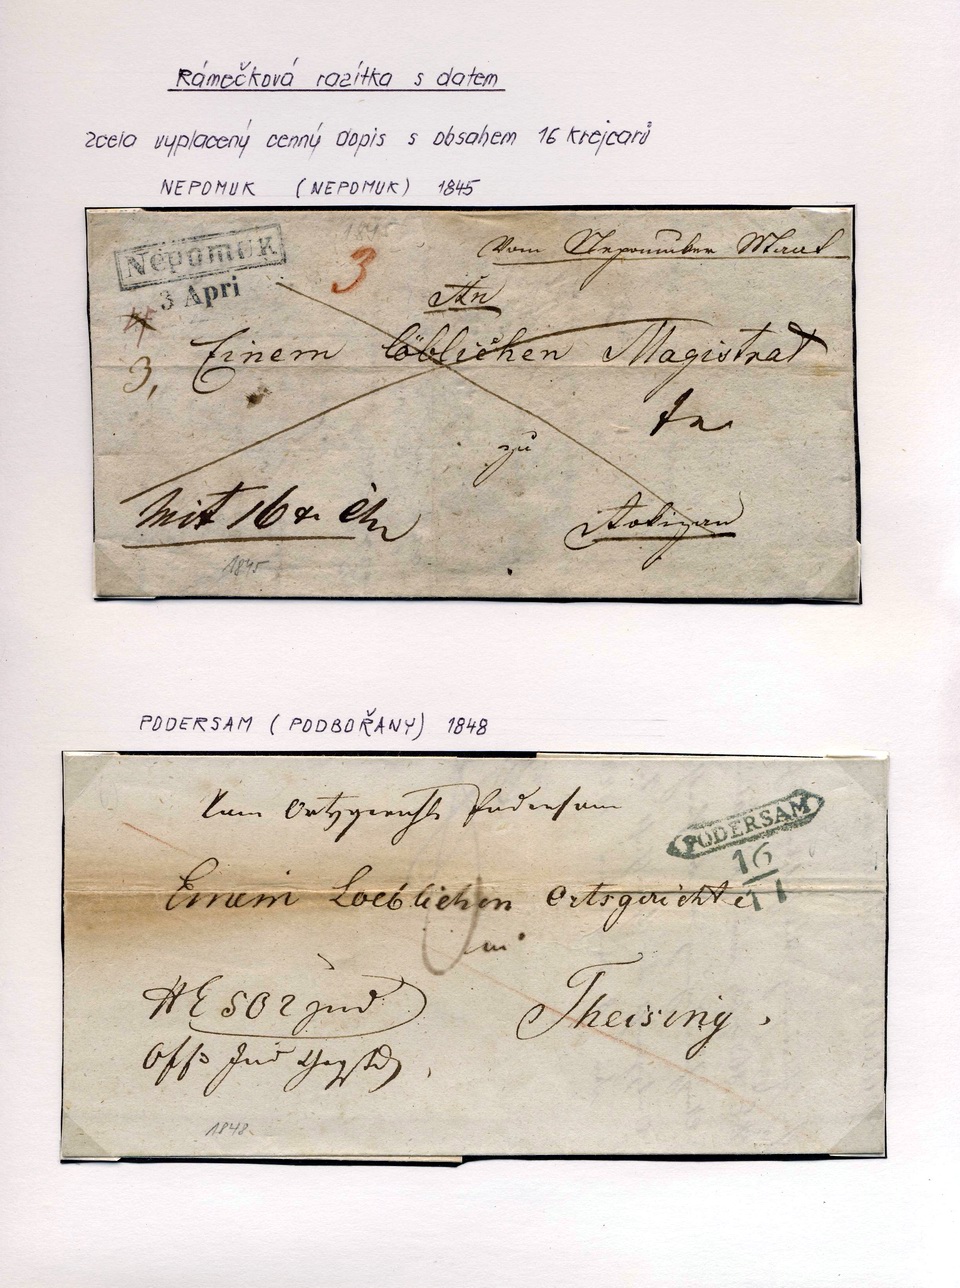 Rámečková razítka s datem
zcela vyplacený cenný dopis s obsahem 16 krejcarů
NEPOMUK (NEPOMUK) 1845
1845
Nepomuk
3 Apri
3
Vom Nepomuker Mtrat
An
3,
Einem löblichen Magistrat
In
zu
Mit 16 xr
1845
PODERSAM (PODBOŘANY) 1848
Vom Ortsgericht Podersam
PODERSAM
16
11
Einem Loeblichen Ortsgerichte
Theising.
1848